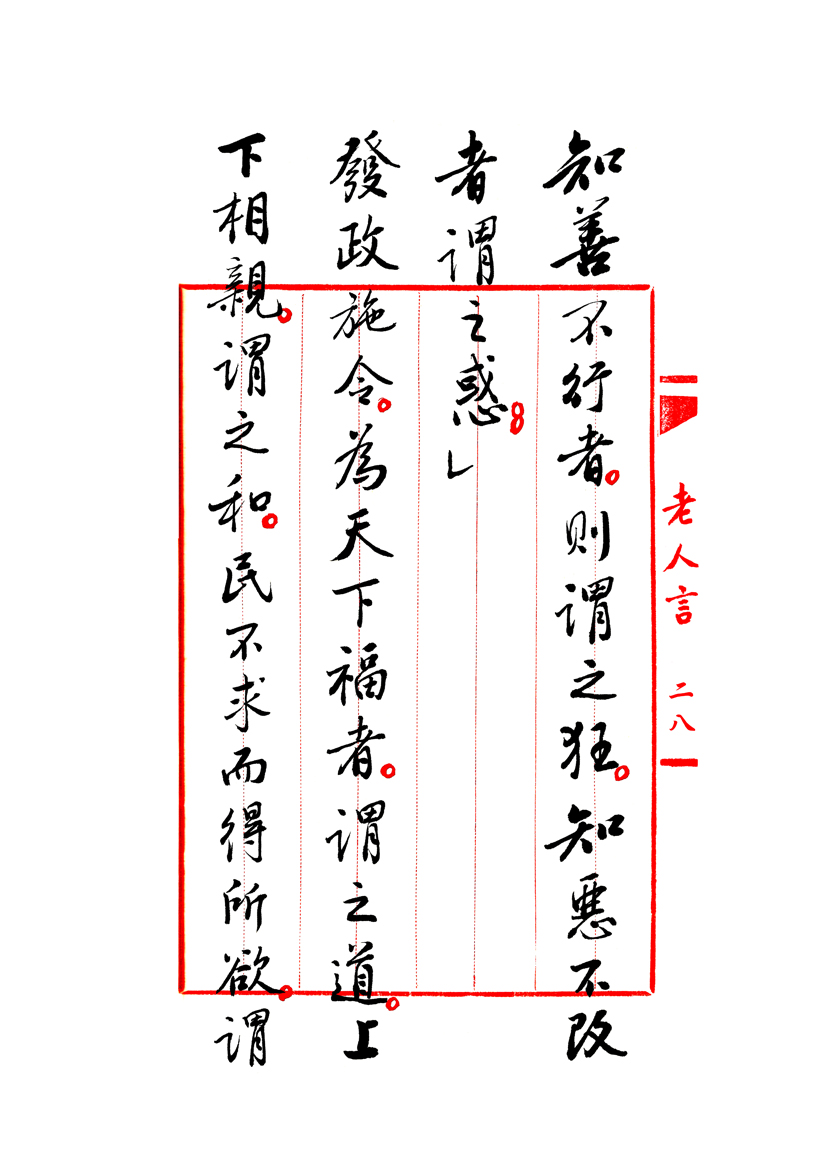 老人言 二八
知善不行者。則謂之狂。知惡不改
者謂之惑。」
發政施令。為天下福者。謂之道。上
下相親。謂之和。民不求而得所欲。謂